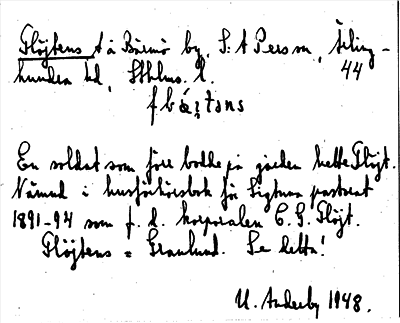 Flöjtens t å Bärmö by, S:t Per sn, Ärling-
hundra hd, Sthlms. l. 44
En soldat som förr bodde på gården hette Flöjt.
Nämnd i husförhörsbok för Sigtuna pastorat
1891-94 som f. d. korpralen C. G. Flöjt.
Flöjtens = Granlund. Se detta!
U. Anderby 1948.